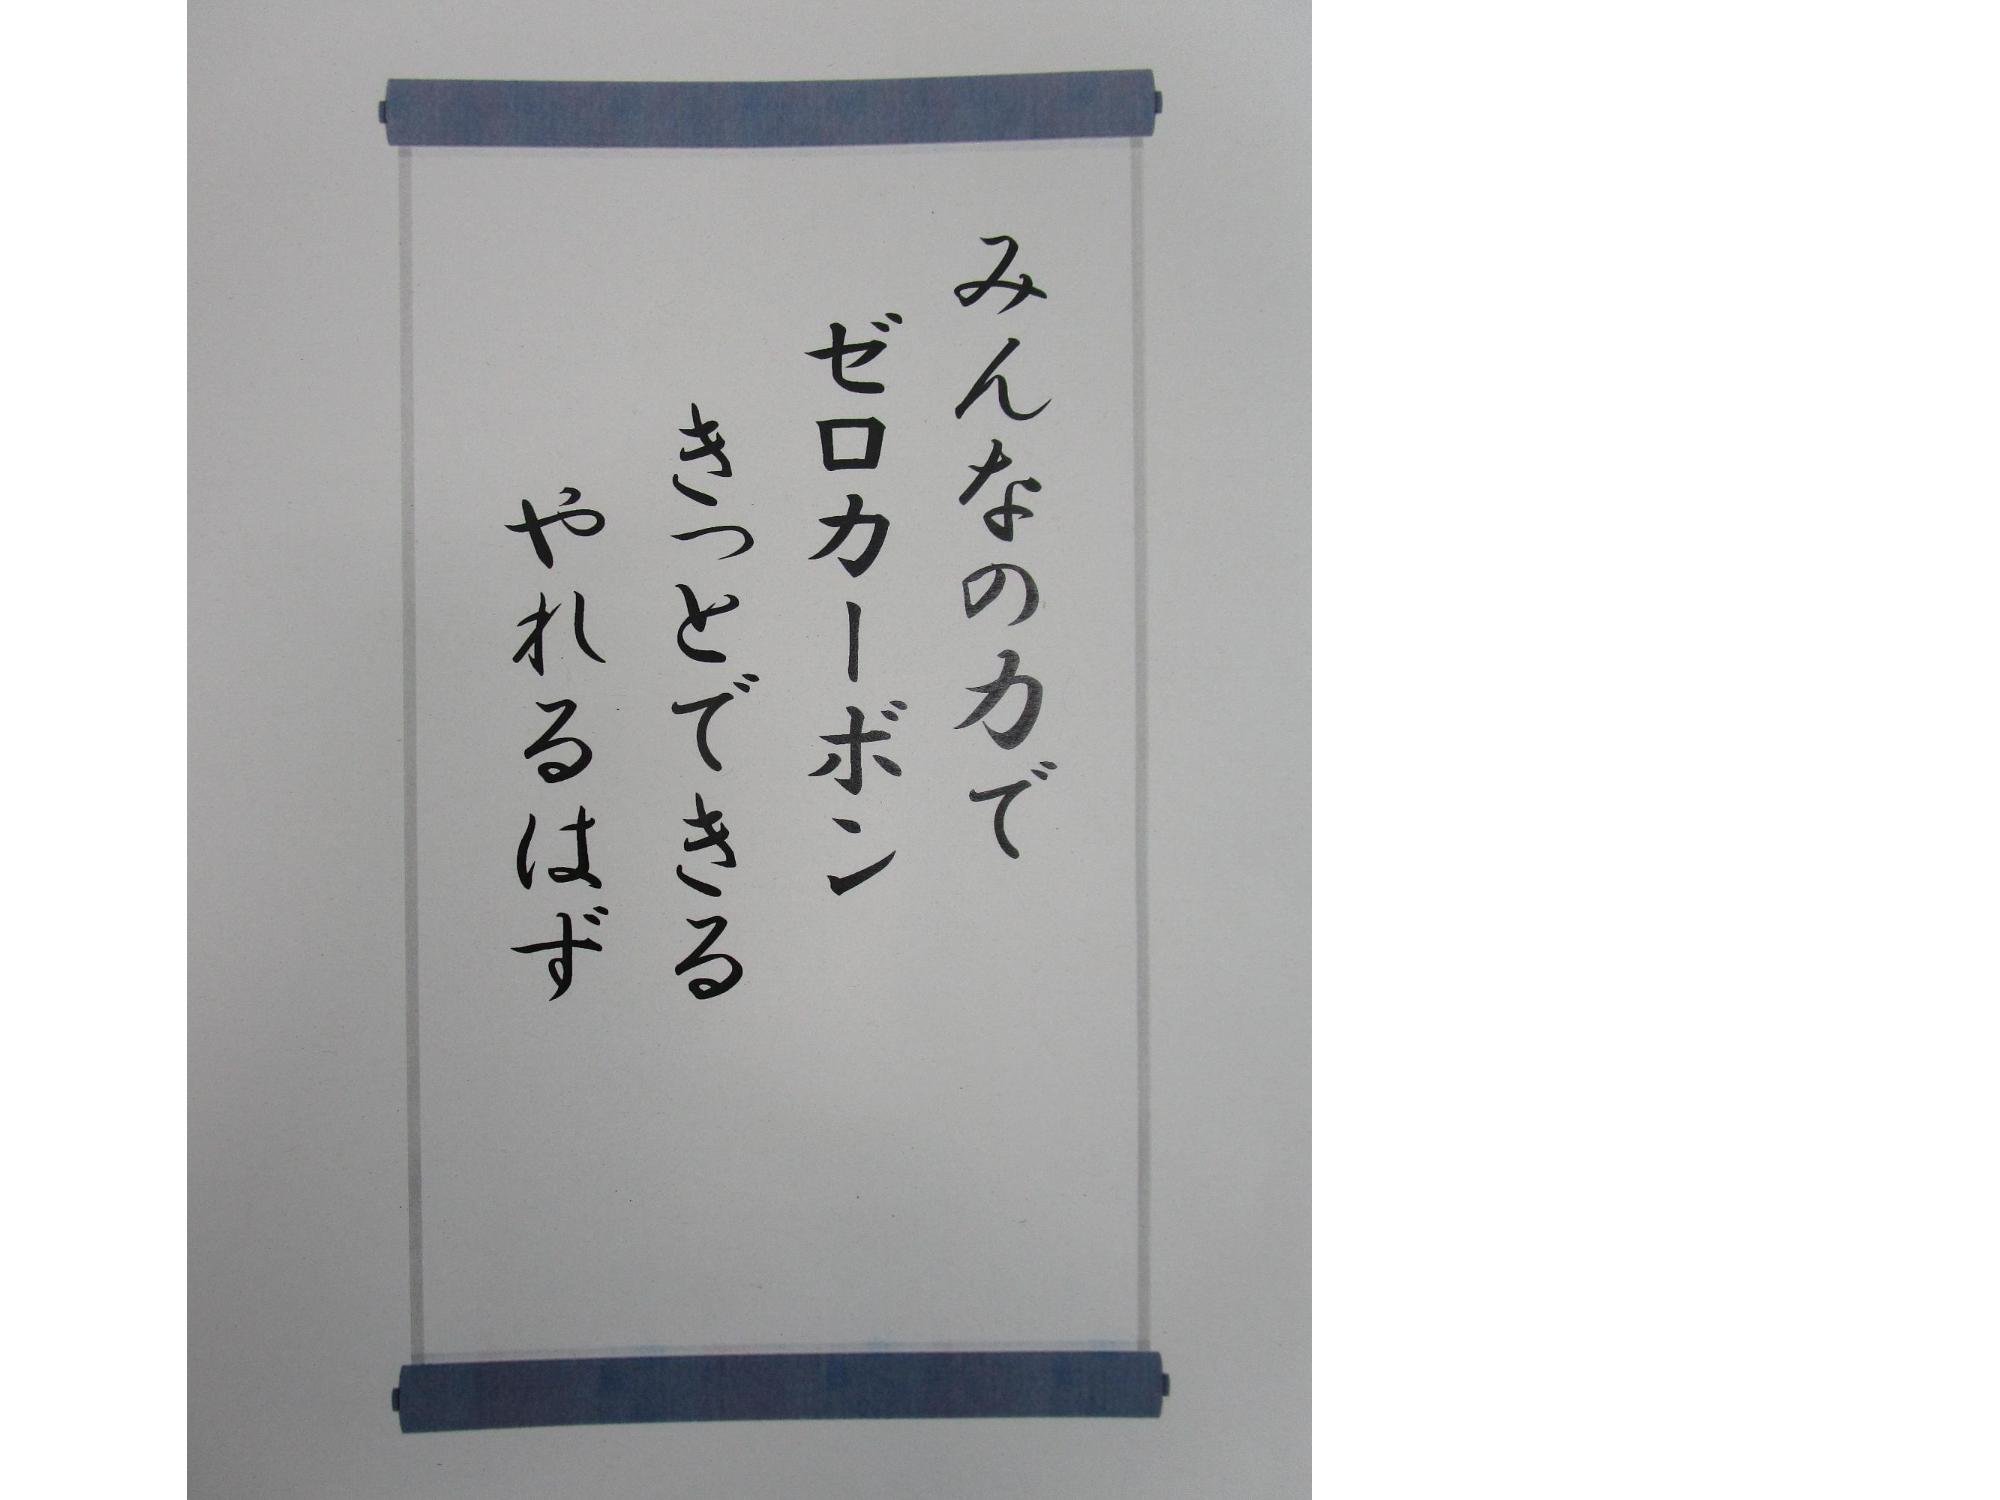 みんなの力で
ゼロカーボン
きっとできる
やれるはず